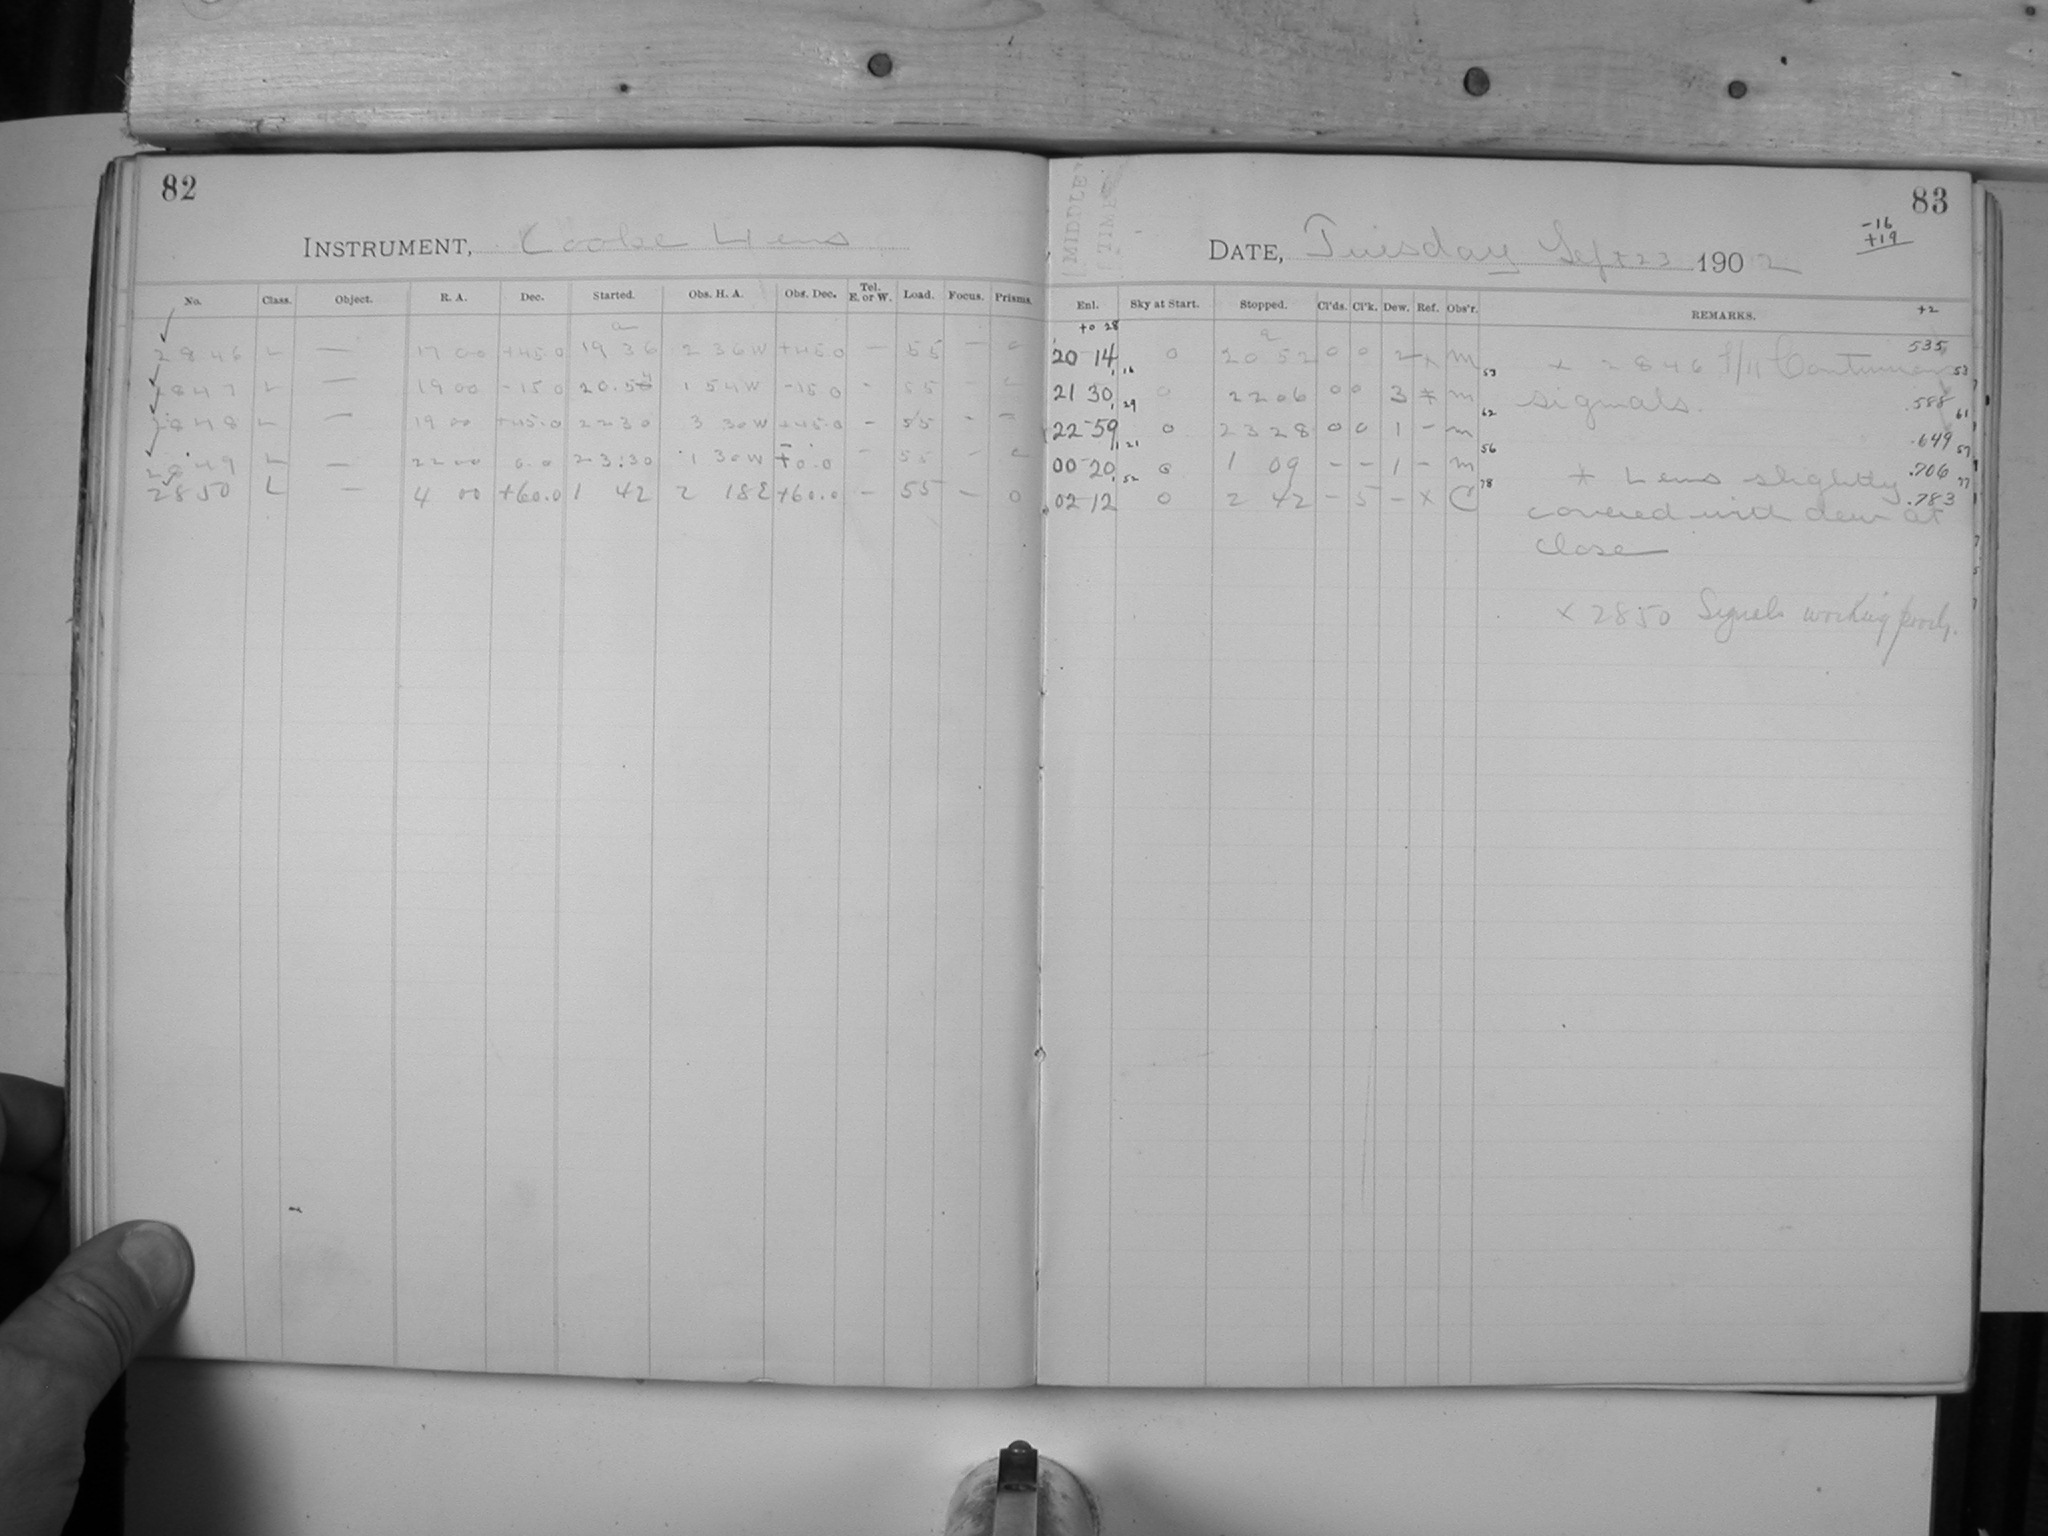 82
INSTRUMENT, Cooke Lens
No. Class. Object. R. A. Dec. Started. Obs. H. A. Obs. Dec. Tel. E. or W. Load. Focus. Prisms.
2846 L — 17 00 +45.0 19 36 2 36 W +45.0 — 55 — 0
2847 L — 19 00 -15 0 20.54 1 54 W -15 0 - 55 - 0
2848 L — 19 00 +45.0 22 30 3 30 W +45.0 - 55 - -
2849 L — 22 00 0.0 23:30 1 30 W +0.0 - 55 - 0
2850 L — 4 00 +60.0 1 42 2 18 E +60.0 — 55 — 0
MIDDLE
TIME
83
-16
+19
DATE, Tuesday Sept 23 1902
Enl. Sky at Start. Stopped. Cl'ds. Cl'k. Dew. Ref. Obs'r. REMARKS.
+2
+0 28
20 14 0 20 52 0 0 2 x m
21 30 0 22 06 0 0 3 * m
22 59 0 23 28 0 0 1 - m
00 20 0 1 09 - - 1 - m
02 12 0 2 42 - 5 - x C
16
29
21
52
53
62
56
78
535
.588
.649
.706
.783
53
61
57
77
x 2846 f/11 Continuous
signals.
* Lens slightly
covered with dew at
close
x 2850 Signals working poorly.